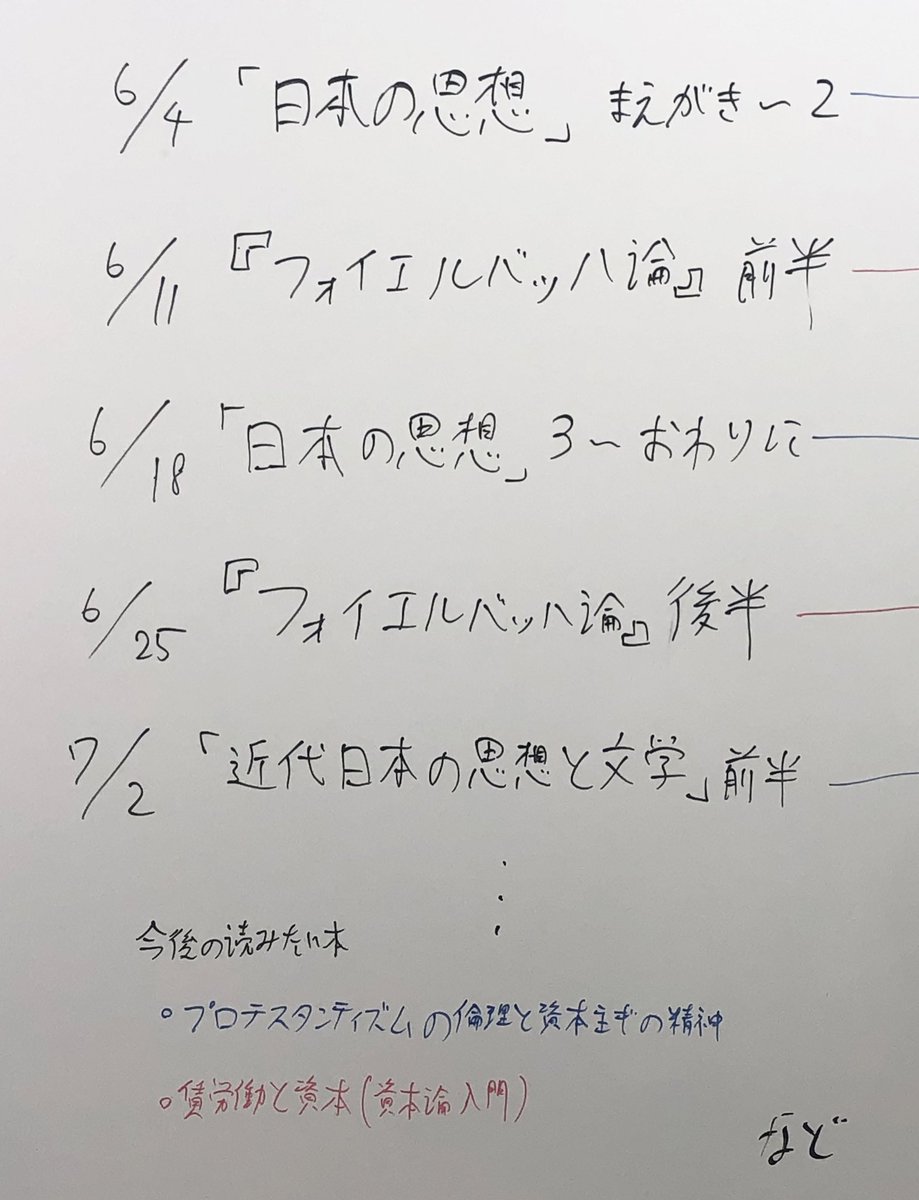 6/4 「日本の思想」 まえがき〜2
6/11 『フォイエルバッハ論』 前半
6/18 「日本の思想」 3〜おわりに
6/25 『フォイエルバッハ論』 後半
7/2 「近代日本の思想と文学」 前半
⋮
今後の読みたい本
○プロテスタンティズムの倫理と資本主ギの精神
○賃労働と資本(資本論入門)
など